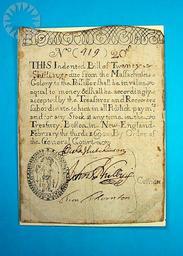 No (419) 20s
THIS Indented Bill of Twenty
Shillings due from the Massachusets
Colony to the Possessor shall be in value
equal to money & shall be accordingly
accepted by the Treasurer and Receivers
subordinate to him in all Publick paym's
and for any Stock at any time in the
Treasury. Boston in New-England
February the third 1690. By Order of
the General Court
Elisha Hutchinson
John Phillips
Tim Thornton